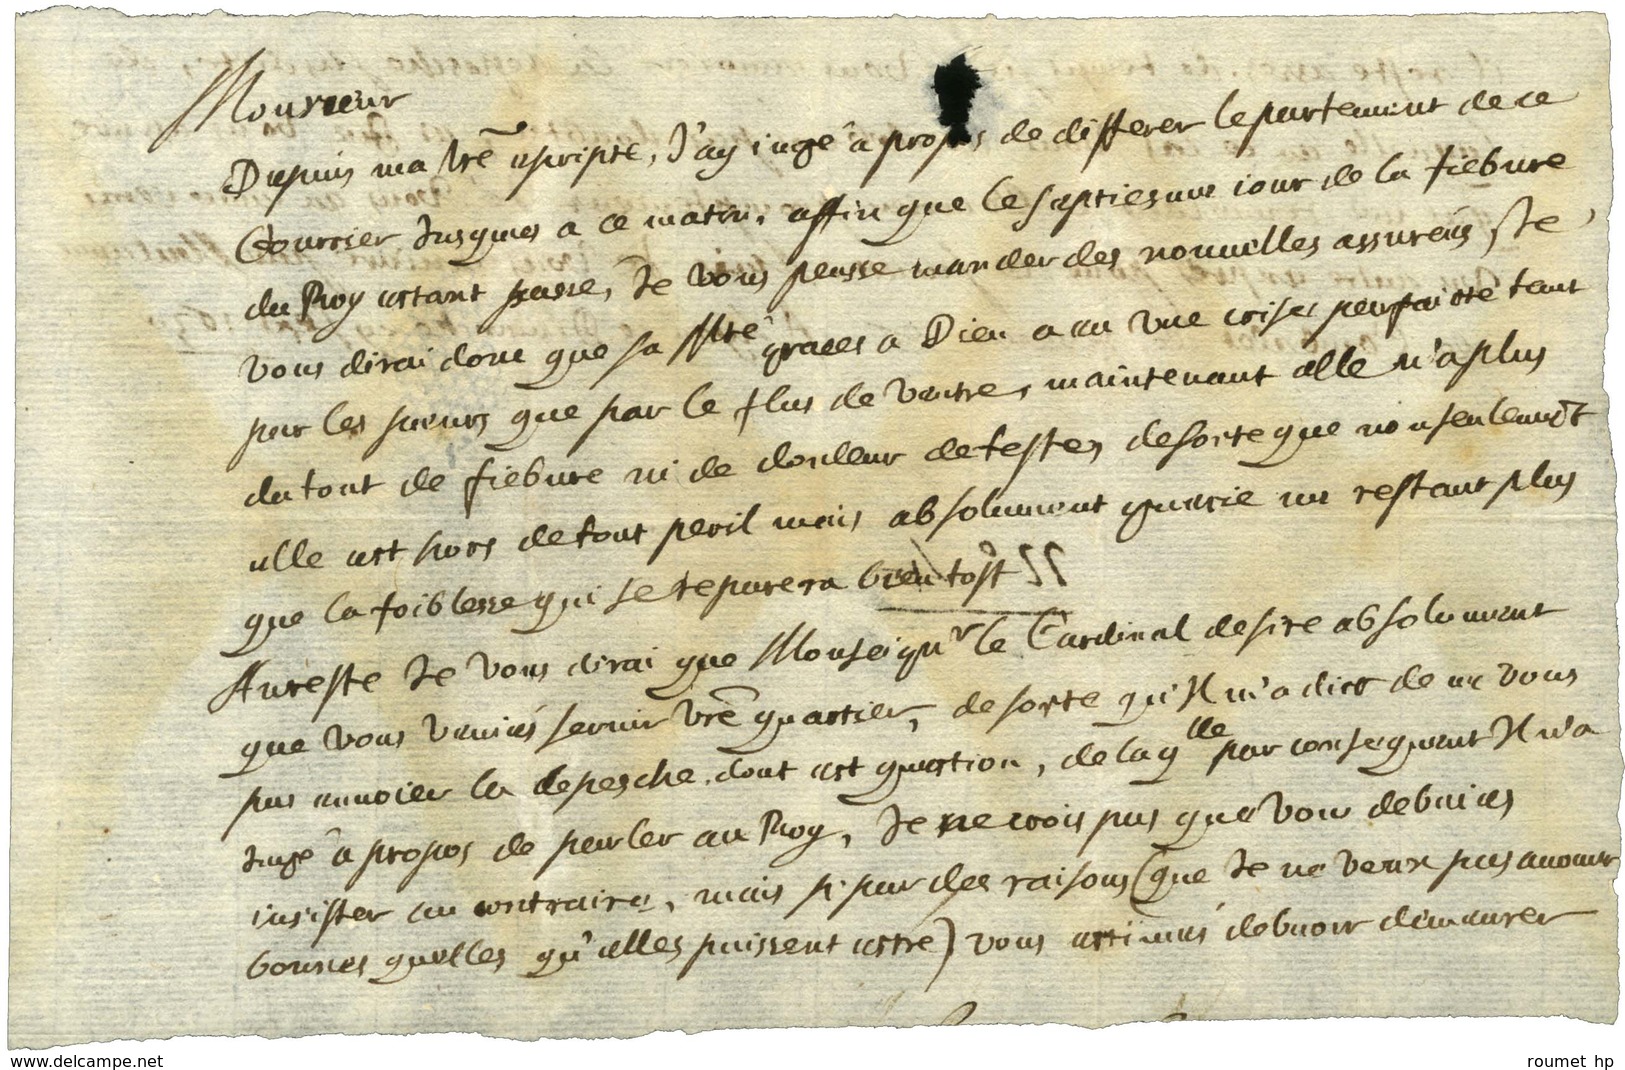 Monsieur
Depuis ma lrẽ escripte, J'ay iugé à propos de differer le partement de ce
Courrier Jusques a ce matin, affin que le septiesme iour de la fiebure
du Roy estant passé, Je vous peusse mander des nouuelles assureés, Je
vous dirai donc que sa Mté graces a Dieu a eu vne crise, si parfaitte tant
par les sueurs que par le flus de ventre, maintenant elle n'a plus
du tout de fiebure ni de douleur de teste, de sorte que non seulemẽt
elle est hors de tout peril mais absolument guerie ne restant plus
que la foiblesse qui se reparera bien tost
Au reste Je vous dirai que Monseignr le Cardinal desire absolument
que vous veniés seruir vrẽ quartier, de sorte qu'Il m'a dict de ne vous
pas enuoier la depesche, dont est question, de laqlle par consequent Il n'a
Jugé à propos de parler au Roy, Je ne crois pas que vous debuiés
insister au contraire, mais si par des raisons (que Je ne veux pas auouer
bonnes quelles qu'elles puissent estre) vous estimiés debuoir demeurer
www.delcampe.net
roumet hp